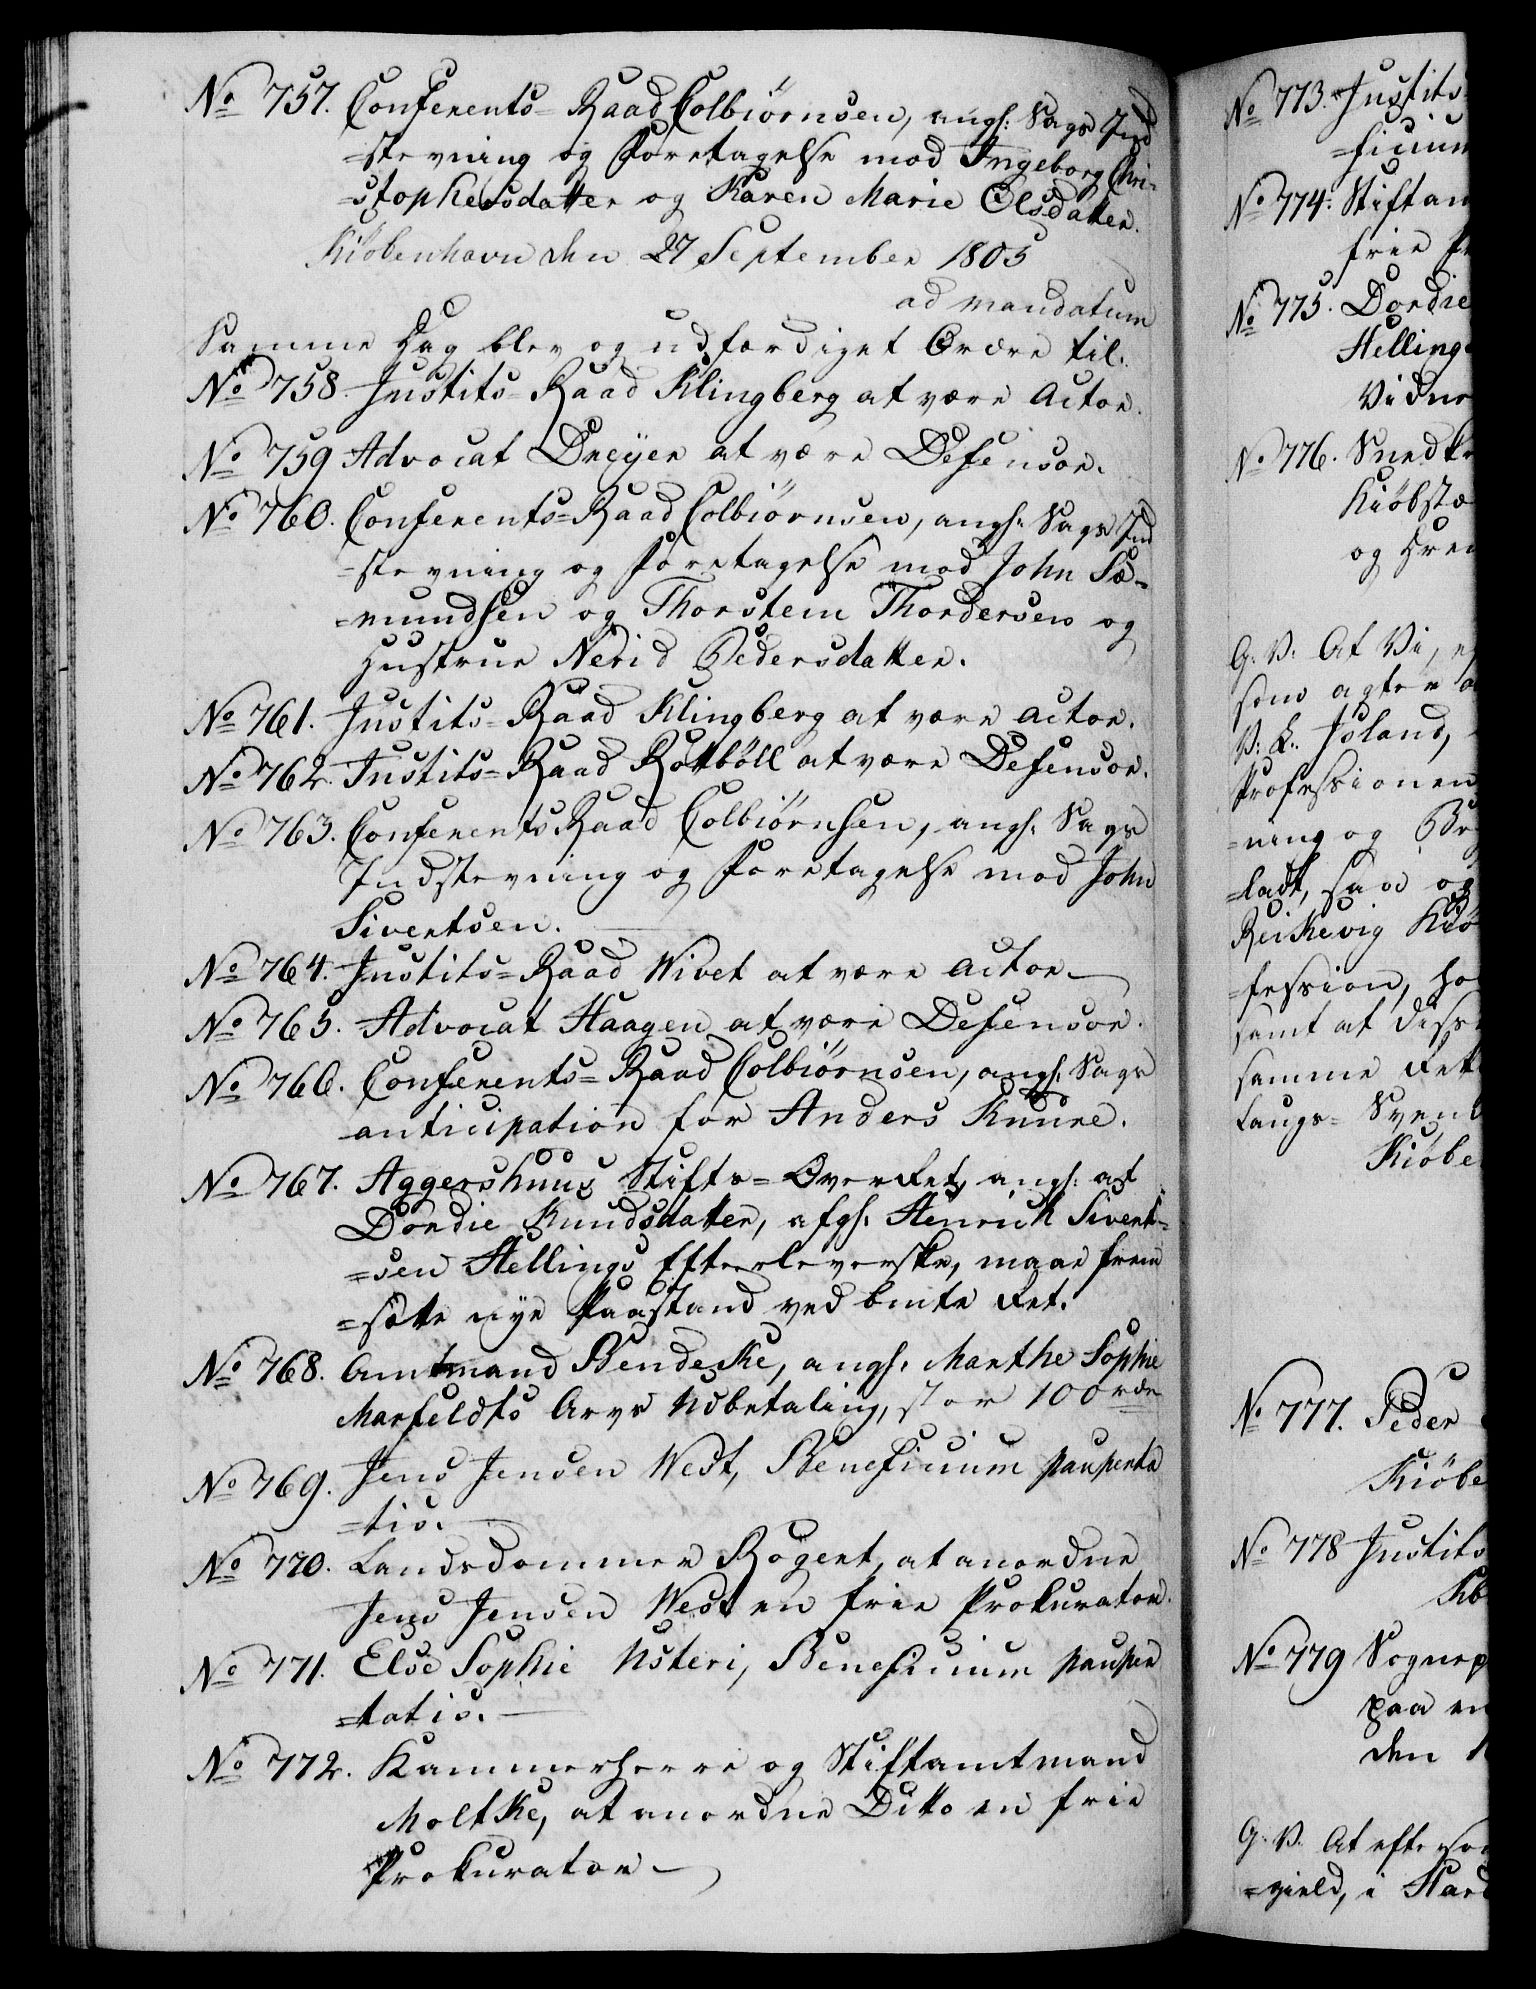 No 757. Conferents-Raad Colbiörnsen, angl: Sags Ind
=stevning og Foretagelse mod Ingeborg Chri-
=stophersdatter og Karen Marie Olsdatter.
Kiöbenhavn den 27 September 1805
ad mandatum
Samme Dag blev og udfærdiget Ordre til:
No 758. Justits-Raad Klingberg at være Actor.
No 759 Advocat Dreyer at være Defensor.
No 760. Conferents-Raad Colbiörnsen, angl: Sags Ind
=stevning og Foretagelse mod John Sæ-
=mundsen og Thorstein Thordersen og
Hustrue Nerid Pedersdatter.
No 761. Justits-Raad Klingberg at være Actor.
No 762. Justits-Raad Rottböll at være Defensor.
No 763. Conferents Raad Colbiörnsen, angl: Sags
Indstevning og Foretagelse mod John
Sivertsen.
No 764. Justits-Raad Wivet at være Actor
No 765. Advocat Haagen at være Defensor.
No 766. Conferents-Raad Colbiörnsen, angl: Sags
anticipation for Anders Knure.
No 767. Aggershuus Stifts-OverRet, angl: at
Dordie Knudsdatter, afgl: Henrich Sivert=
=sen Hellings Efterleverske, maae frem
=sætte nye Paastand ved bmte Ret.
No 768. Amtmand Bendeke, angl: Marthe Sophie
Marfeldts Arvs Udbetaling, stor 100 rdr
No 769. Jens Jensen West, Beneficium pauperta
=tis.
No 770. Landsdommer Rogert, at anordne
Jens Jensen West en frie Prokurator.
No 771. Else Sophie Usteri, Beneficium pauper
=tatis.
No 772. Kammerherre og Stiftamtmand
Moltke, at anordne Ditto en frie
Prokurator
No 773. Justits
=ficium
No 774. Stiftam
frie P
No 775. Dordie
Helling
Vidne
No 776. Snedke
Kiöbstæ
og
G. V. At Vi,
som agter a
V: L: Island,
Professionen
=ning og
=ladt, saa og
Reikevig Kiö
=fession, ho
samt at disse
samme Rett
Laugs- Svend
Kiöbe
No 777. Peder
Kiöbe
No 778 Justits
Kb
No 779 Sognep
paa en
den 1
G. V. At efterso
=gield, i Hard